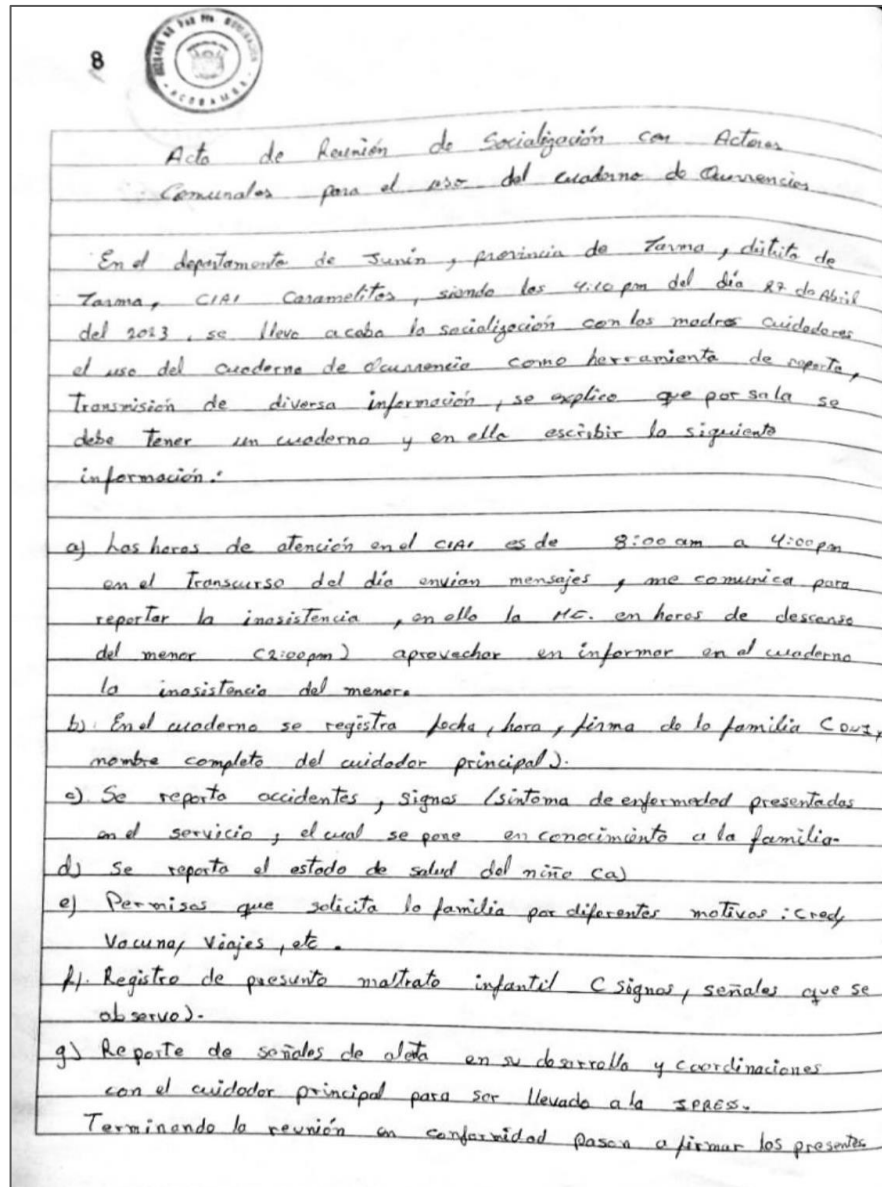 8
JUZGADO DE PAZ POR NOMINACIÓN
ACOBAMBA
Acta de Reunión de Socialización con Actores
Comunales para el uso del cuaderno de Ocurrencias
En el departamento de Junín, provincia de Tarma, distrito de
Tarma, CIAI Caramelitos, siendo las 4:10 pm del día 27 de Abril
del 2023, se llevo acabo la socialización con las madres cuidadoras
el uso del cuaderno de Ocurrencia como herramienta de reporte,
Transmisión de diversa información, se explico que por sala se
debe Tener un cuaderno y en ella escribir lo siguiente
información:
a) Las horas de atención en el CIAI es de 8:00 am a 4:00 pm
en el Transcurso del día envian mensajes, me comunica para
reportar la inasistencia, en ello la MC. en horas de descanso
del menor (2:00pm) aprovechar en informar en el cuaderno
la inasistencia del menor.
b). En el cuaderno se registra fecha, hora, firma de la familia (DNI,
nombre completo del cuidador principal).
c). Se reporta accidentes, signos /sintoma de enfermedad presentadas
en el servicio, el cual se pone en conocimiento a la familia.
d) Se reporta el estado de salud del niño (a)
e) Permisos que solicita la familia por diferentes motivos: Cred,
Vacuna, Viajes, etc.
f). Registro de presunto maltrato infantil (signos, señales que se
observo).
g) Reporte de señales de alerta en su desarrollo y coordinaciones
con el cuidador principal para ser llevado a la IPRESS.
Terminando la reunión en conformidad pasan a firmar los presentes